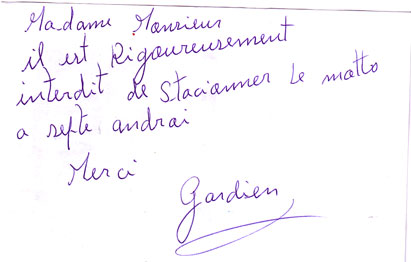 Madame Monsieur
il est Rigoureusement
interdit de Stacianner Le motto
a septe andrai
Merci
Gardien